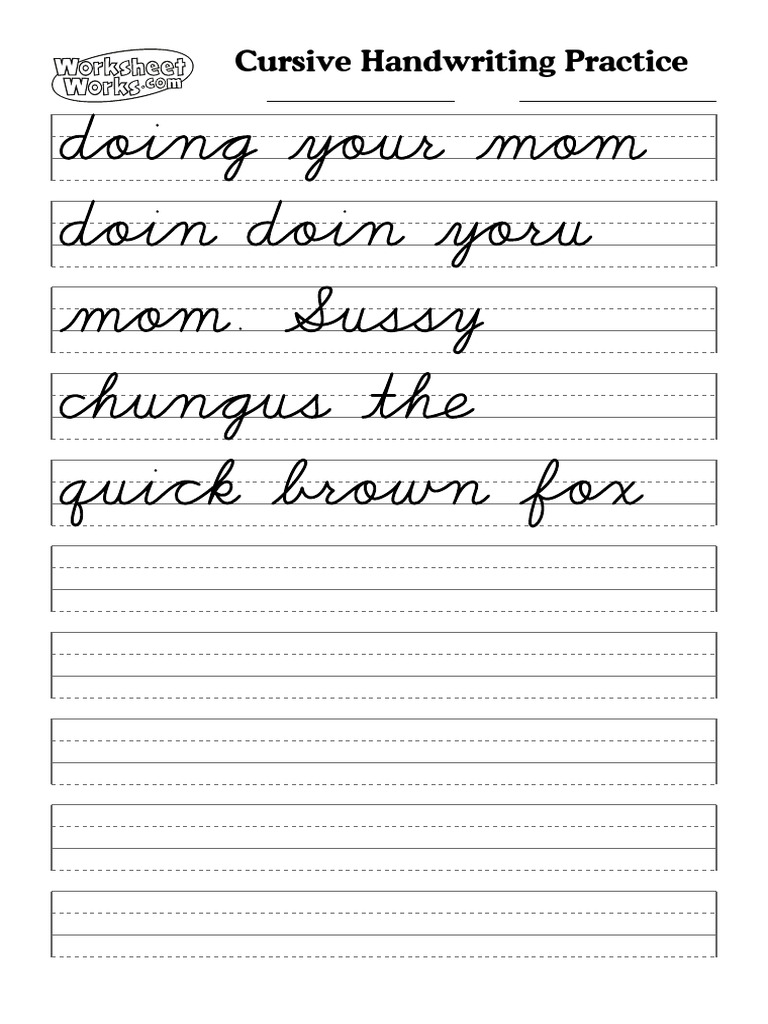 Worksheet
Works.com
Cursive Handwriting Practice
doing your mom
doin doin yoru
mom. Sussy
chungus the
quick brown fox